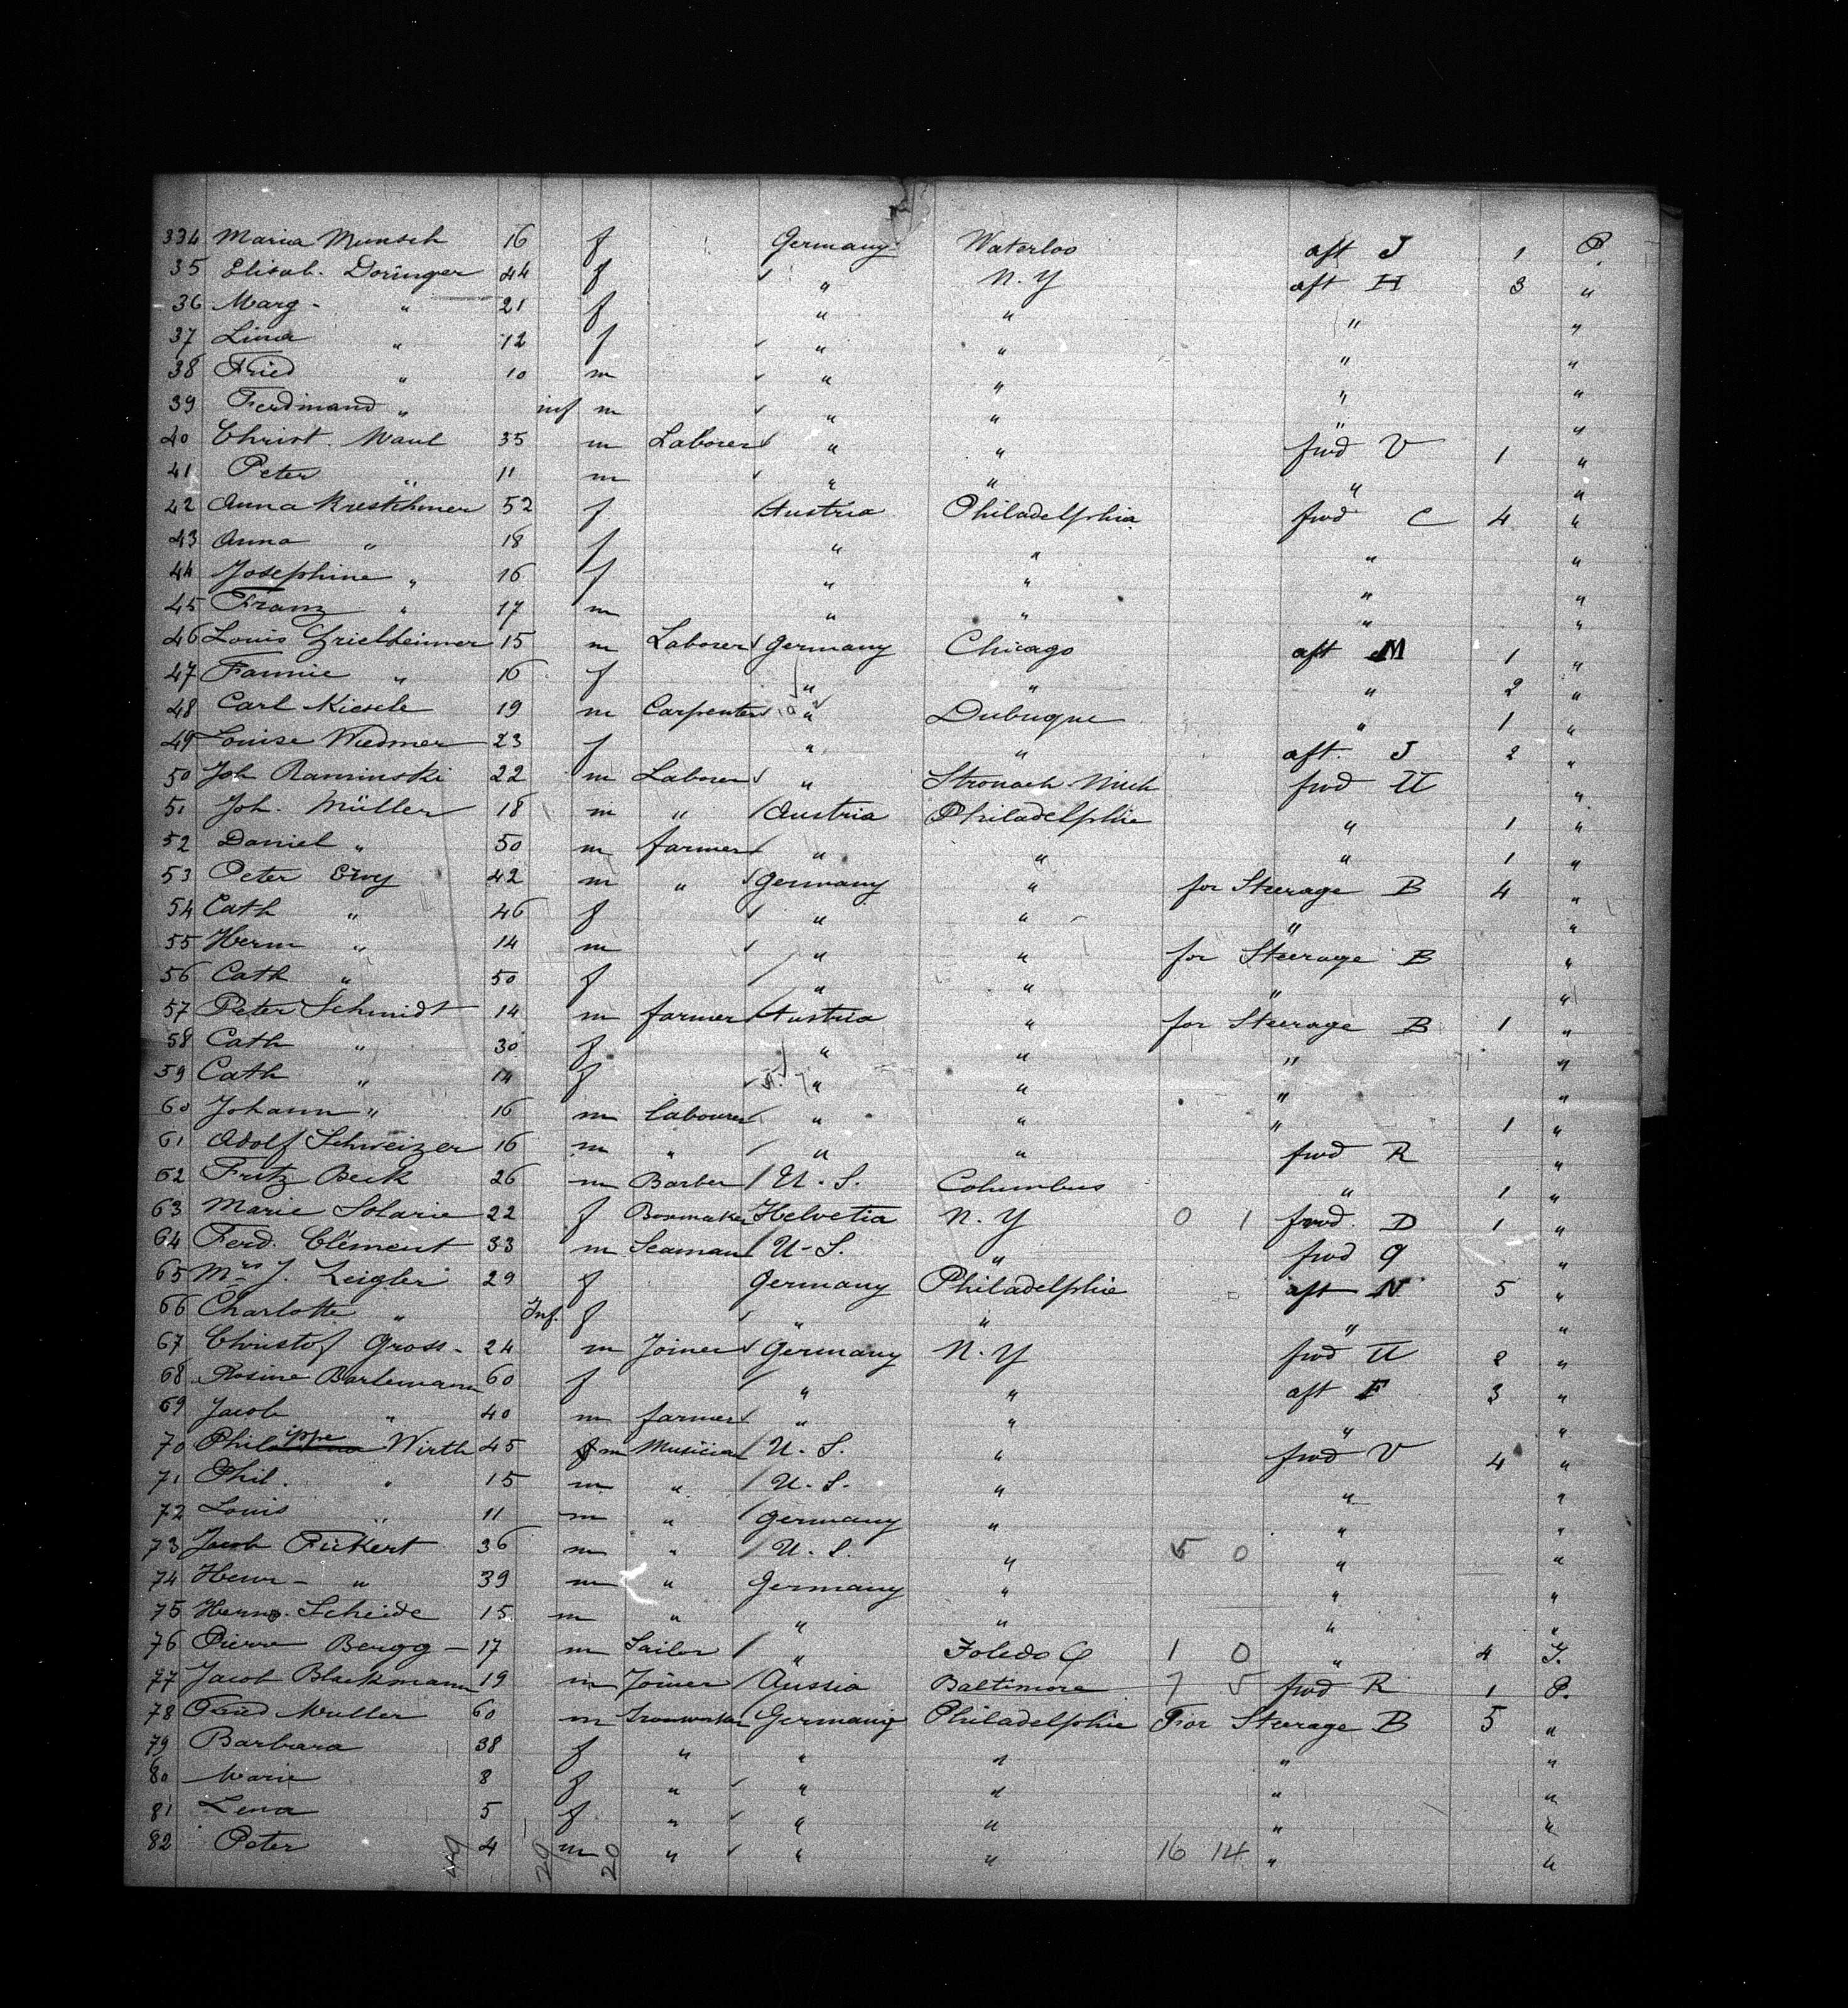 334 Maria Munsch 16 f Germany Waterloo aft J 1 P.
35 Elisab. Doringer 44 f " N.Y aft H 3 "
36 Marg - " 21 f " " " "
37 Lina " 12 f " " " "
38 Fried " 10 m " " " "
39 Ferdinand " inf m " " " "
40 Christ. Maul 35 m Laborer " " fwd V 1 "
41 Peter " 11 m " " " "
42 Anna Kreschmer 52 f Austria Philadelphia fwd C 4 "
43 Anna " 18 f " " " "
44 Josephine " 16 f " " " "
45 Franz " 17 m " " " "
46 Louis Grielheimer 15 m Laborer Germany Chicago aft M 1 "
47 Fannie " 16 f " " " 2 "
48 Carl Kiesele 19 m Carpenter " Dubuque " 1 "
49 Louise Wiedmer 23 f " " aft. J 2 "
50 Joh Raminski 22 m Laborer " Stronach Mich fwd U "
51 Joh. Müller 18 m " Austria Philadelphie " 1 "
52 Daniel " 50 m farmer " " " 1 "
53 Peter Erny 42 m " Germany " for Steerage B 4 "
54 Cath " 46 f " " " "
55 Herm " 14 m " " for Steerage B "
56 Cath " 50 f " " " "
57 Peter Schmidt 14 m farmer Austria " for Steerage B 1 "
58 Cath " 30 f " " " "
59 Cath " 14 f " " " "
60 Johann " 16 m labourer " " " 1 "
61 Adolf Schweizer 16 m " " " fwd R "
62 Fritz Beck 26 m Barber U. S. Columbus " 1 "
63 Marie Solarie 22 f Boxmaker Helvetia N. Y 0 1 fwd. D 1 "
64 Ferd. Clément 33 m Seaman U-S. " fwd Q "
65 Mrs J. Zeigler 29 f Germany Philadelphie aft N 5 "
66 Charlotte " Inf. f " " " "
67 Christof Gross - 24 m Joiner Germany N. Y fwd U 2 "
68 Rosine Bartemann 60 f " " aft F 3 "
69 Jacob " 40 m farmer " " " "
70 Philippe Wirth 45 m Musician U. S. " fwd V 4 "
71 Phil. " 15 m " U. S. " " "
72 Louis " 11 m " Germany " " "
73 Jacob Pickert 36 m " U. S. " 5 0 " "
74 Henr - " 39 m " Germany " " "
75 Herm. Scheide 15 m " " " " "
76 Pierre Bengg - 17 m Sailor " Toledo O 1 0 " 4 I.
77 Jacob Blackmann 19 m Joiner Russia Baltimore 7 5 fwd R 1 P.
78 Ferd Muller 60 m Ironworker Germany Philadelphie For Steerage B 5 "
79 Barbara 38 f " " " " "
80 Marie 8 f " " " " "
81 Lena 5 f " " " " "
82 Peter 4 m " " " 16 14 " "
49 29 20